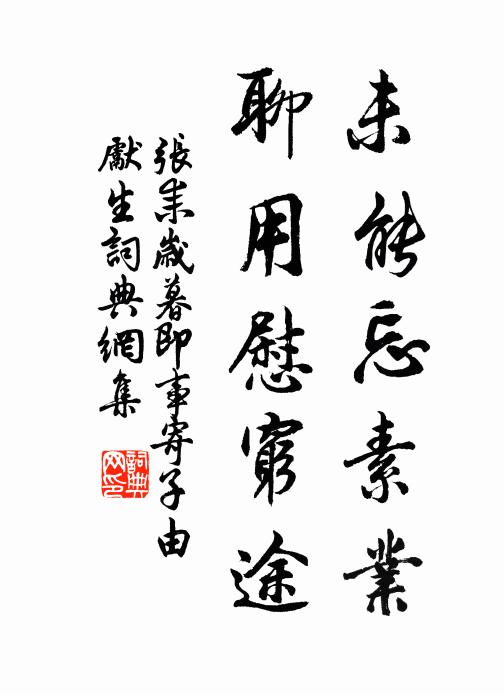 未能忘素業
聊用慰窮途
張耒歲暮即事寄子由
獻生詞典網集
詞典網印